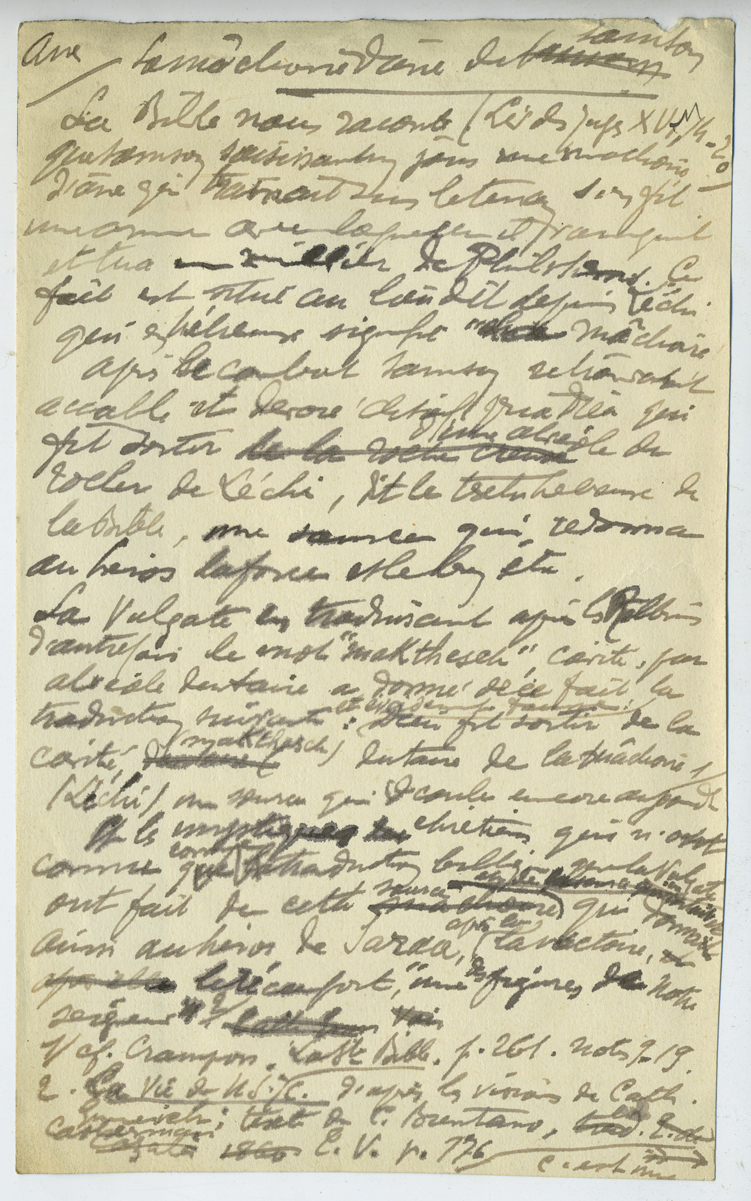 Ane
La mâchoire d'âne de Samson
La Bible nous raconte (Liv. des Juges XV, 14-20
que Samson saisissant un jour une mâchoire
d'âne qui traînait sur le terrain s'en fit
une arme avec laquelle il
et tua un millier de Philistins. Ce
fait est situé au lieu dit depuis Léchi
qui en hébreux signifie mâchoire
après le combat Samson se trouvant
accablé et dévoré de soif pria Dieu qui
fit sortir d'une alvéole du
rocher de Léchi, dit le texte hébreux de
la Bible, une source qui redonna
au héros la force et le
La Vulgate en traduisant après les Rabbins
d'autrefois le mot "makthesch", cavité, par
alvéole dentaire a donné de ce fait la
traduction suivante : Dieu fit sortir de la
cavité (makthesch) dentaire de la mâchoire 1/
(Léchi) une source qui découle encore aujourd'hui
Et les mystiques chrétiens qui n'ont
connu que la traduction
ont fait de cette source qui donna
ainsi au héros de Saraa, après la victoire,
le réconfort, "une des figures de Notre
Seigneur" 2/
1/ cf. Crampon. La Ste Bible. p. 261. note 9-19.
2. La Vie de N.S.J.C. d'après les visions de Cath.
Emmerich; texte de C. Brentano,
Casterman T. V. p. 176